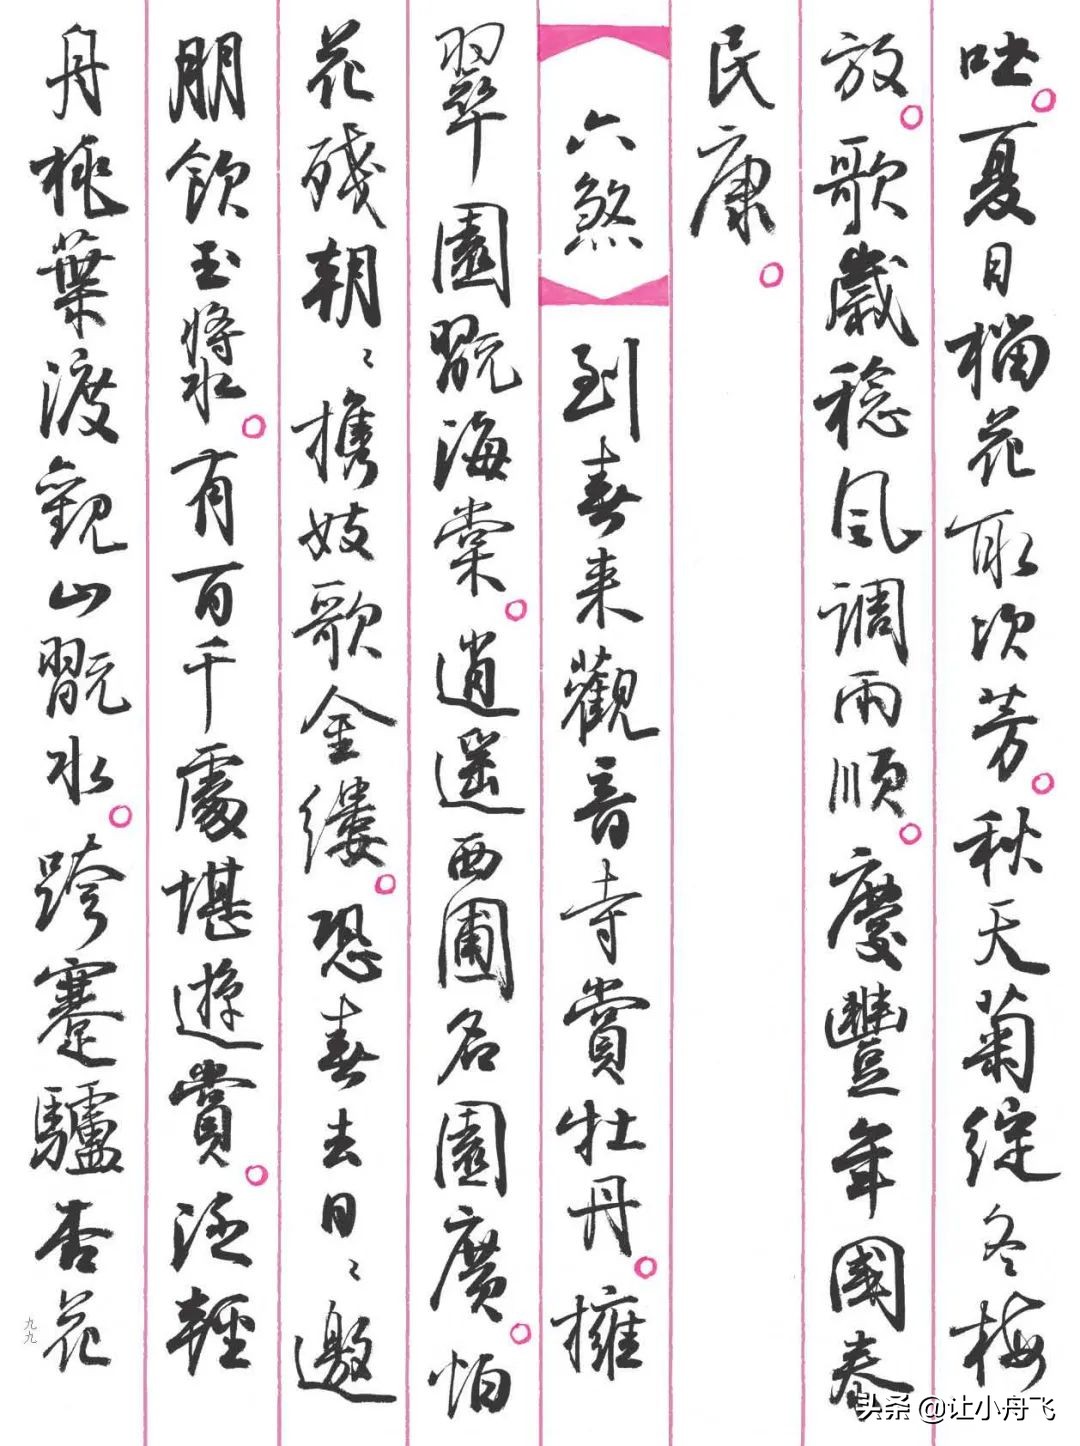 吐。夏日榴花取次芳。秋天菊绽冬梅
放。歌歲稔風調雨順。慶豐年國泰
民康。
六煞
到春来觀音寺賞牡丹。擁
翠園翫海棠。逍遥西圃名園廣。怕
花殘朝〻携妓歌金缕。恐春去日〻邀
朋飲玉漿。有百千處堪遊賞。泛輕
舟桃葉渡觀山翫水。跨蹇驢杏花
九九
头条 @让小舟飞